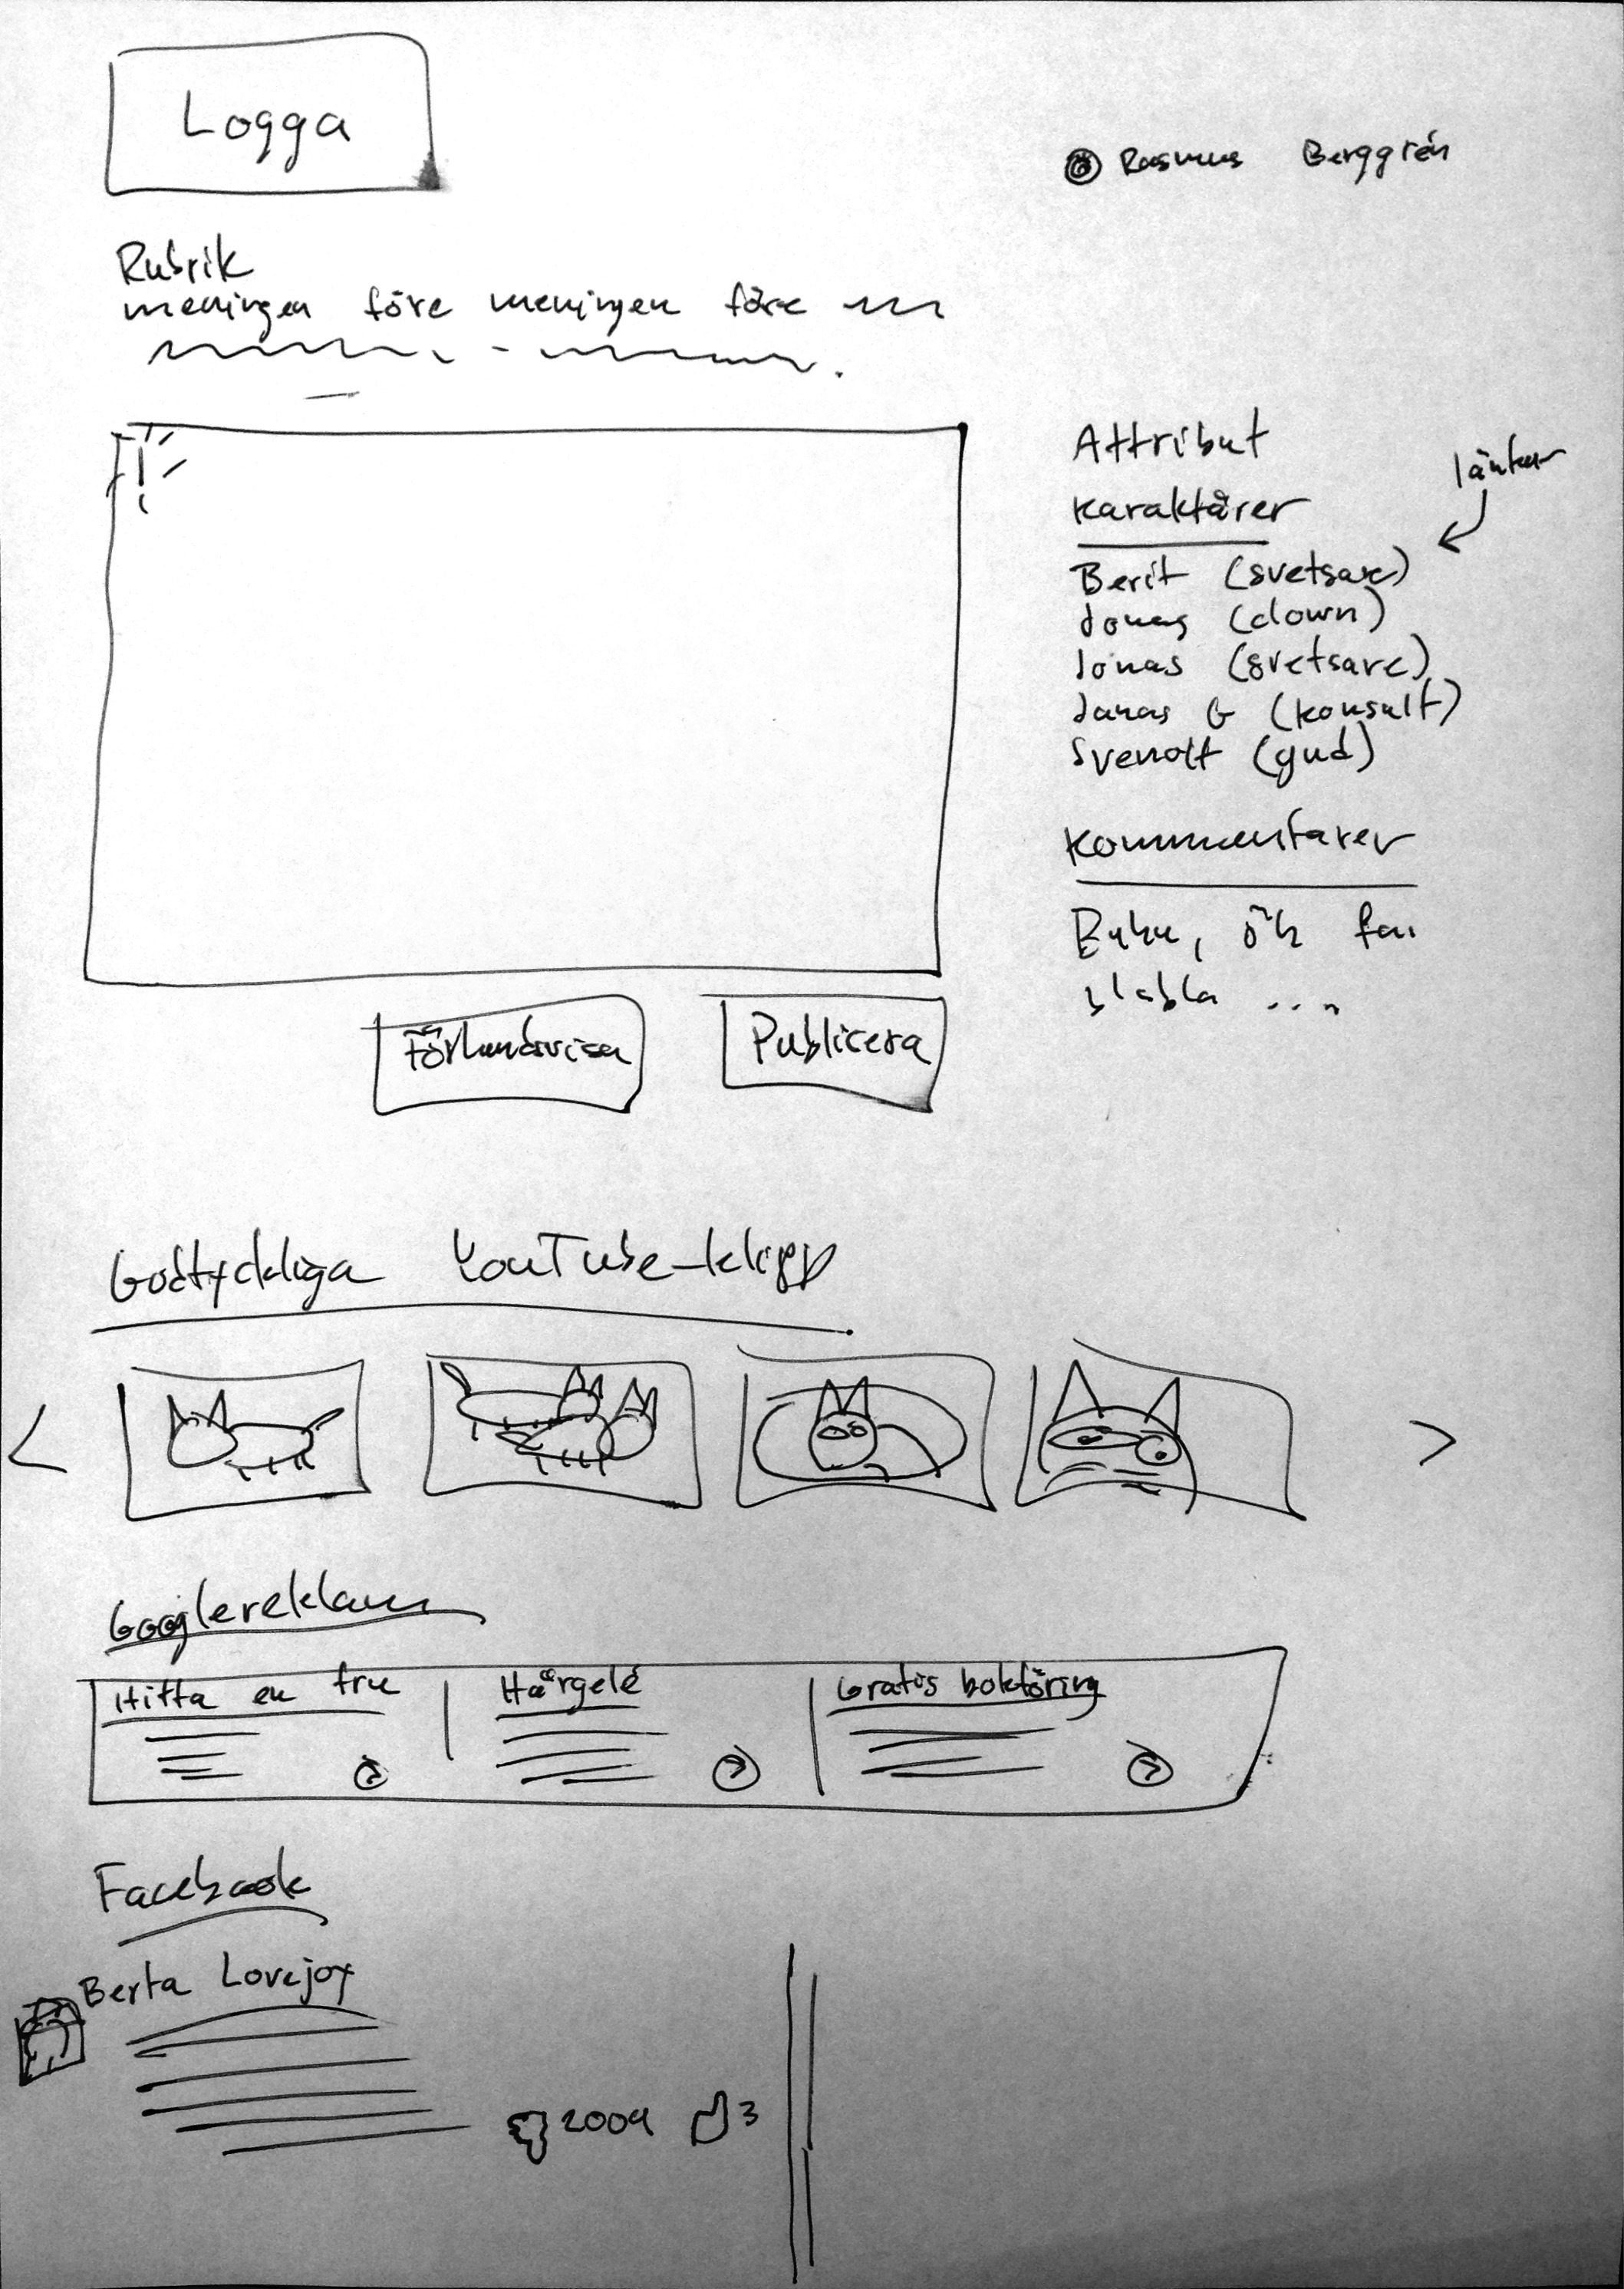 Logga
Rasmus Berggrén
Rubrik
meningen före meningen före
Attribut
länkar
Karaktärer
Berit (svetsare)
Jonas (clown)
Jonas (svetsare)
Jonas G (konsult)
Svenolf (gud)
Kommentarer
blabla ...
Förhandsvisa
Publicera
Godtyckliga YouTube-klipp
< >
Googlereklam
Hitta en fru
Hårgelé
Gratis bokföring
Facebook
Berta Lovejoy
2009 3